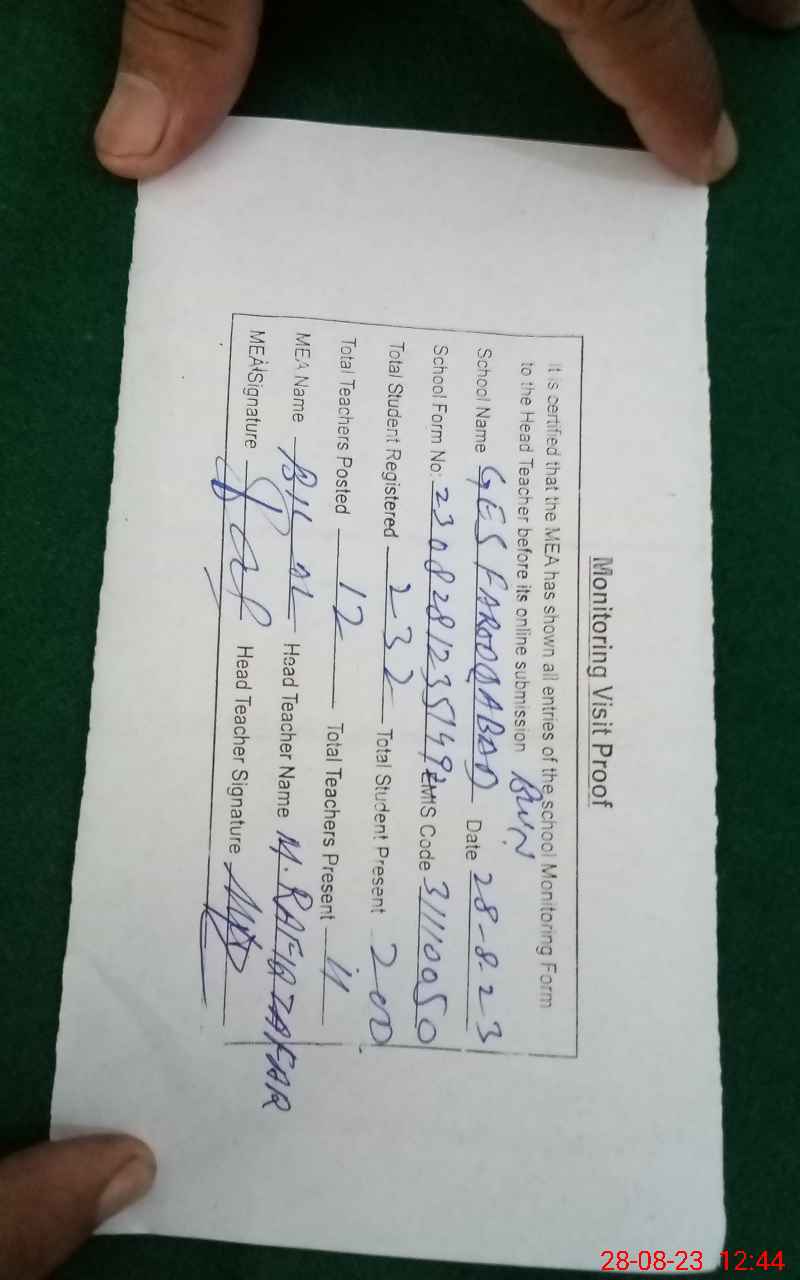 Monitoring Visit Proof
It is certified that the MEA has shown all entries of the school Monitoring Form
to the Head Teacher before its online submission BWN
School Name GES FAROOQABAD Date 28-8-23
School Form No: 230828123514 EMIS Code 31110050
Total Student Registered 232 Total Student Present 200
Total Teachers Posted 12 Total Teachers Present 11
MEA Name BILAL Head Teacher Name M. RAFIQ ZAFAR
MEA Signature Head Teacher Signature
28-08-23 12:44